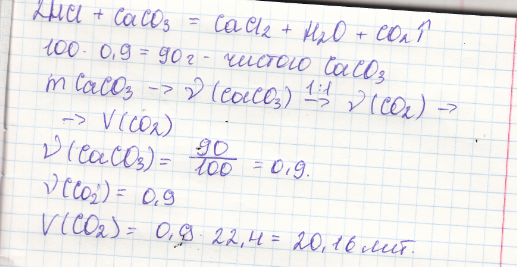 2HCl + CaCO3 = CaCl2 + H2O + CO2↑
100 · 0,9 = 90 г - чистого CaCO3
m CaCO3 → ν (CaCO3) 1:1 → ν (CO2) →
→ V(CO2)
ν (CaCO3) = 90/100 = 0,9.
ν(CO2) = 0,9
V(CO2) = 0,9 · 22,4 = 20,16 лит.